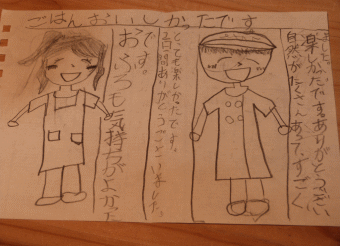 ごはんおいしかったです
おふろも気持ちがよかった
です。
2日間ありがとうございました。
とっても楽しかったです。
自然がたくさんあって、すごく
楽しかったです。ありがとうござい